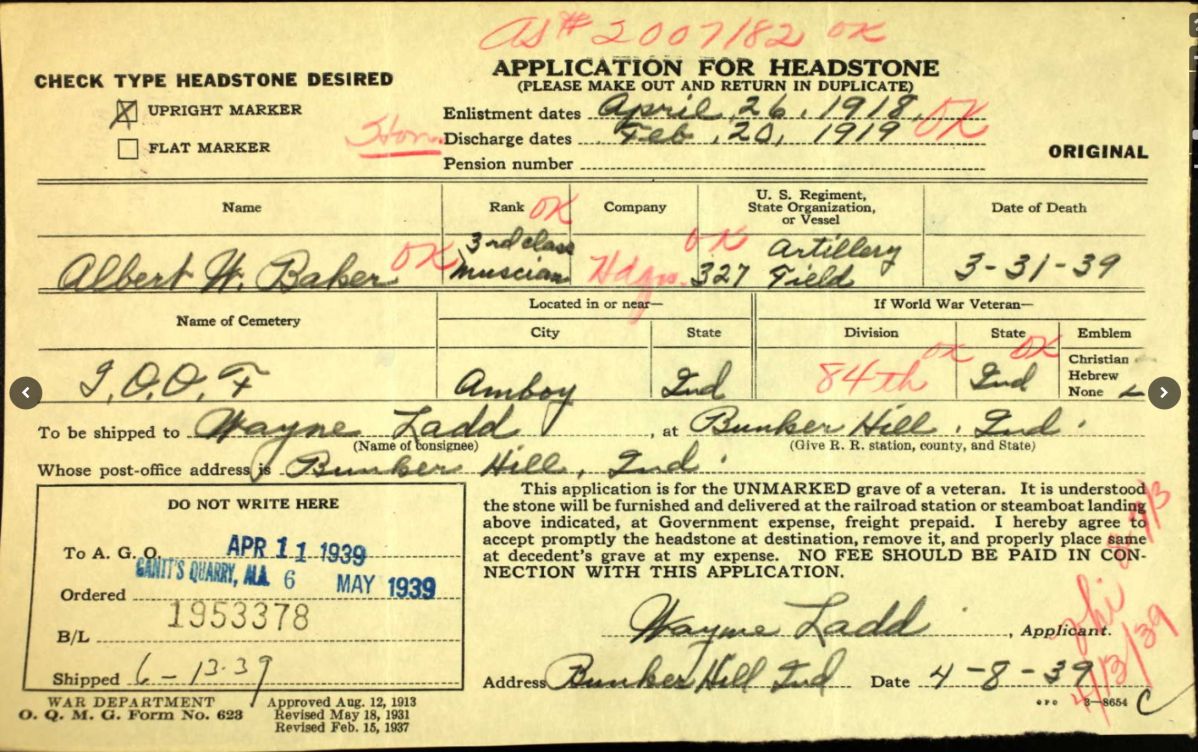 AS# 2007182 OK
CHECK TYPE HEADSTONE DESIRED
APPLICATION FOR HEADSTONE
(PLEASE MAKE OUT AND RETURN IN DUPLICATE)
X UPRIGHT MARKER
Enlistment dates April 26, 1918, OK
FLAT MARKER
Hon.
Discharge dates Feb, 20, 1919
Pension number
ORIGINAL
Name
Rank OK
Company
U. S. Regiment,
State Organization,
or Vessel
Date of Death
Albert W. Baker OK
3rd class
muscian
Hdqrs.
OK
327
Artillery
Field
3-31-39
Name of Cemetery
Located in or near—
If World War Veteran—
City
State
Division
State
Emblem
I.O.O.F
Amboy
Ind
84th OK
Ind OK
Christian
Hebrew
None
To be shipped to Wayne Ladd, at Bunker Hill. Ind.
(Name of consignee)
(Give R. R. station, county, and State)
Whose post-office address is Bunker Hill, Ind.
DO NOT WRITE HERE
To A. G. O. APR 11 1939
GANTT'S QUARRY, ALA 6 MAY 1939
Ordered
1953378
B/L
Shipped 6-13-39
This application is for the UNMARKED grave of a veteran. It is understood
the stone will be furnished and delivered at the railroad station or steamboat landing
above indicated, at Government expense, freight prepaid. I hereby agree to
accept promptly the headstone at destination, remove it, and properly place same
at decedent's grave at my expense. NO FEE SHOULD BE PAID IN CON-
NECTION WITH THIS APPLICATION.
Wayne Ladd, Applicant.
Address Bunker Hill Ind Date 4-8-39
4/13/39
WAR DEPARTMENT
O. Q. M. G. Form No. 623
Approved Aug. 12, 1913
Revised May 18, 1931
Revised Feb. 15, 1937
GPO 3—8654 C